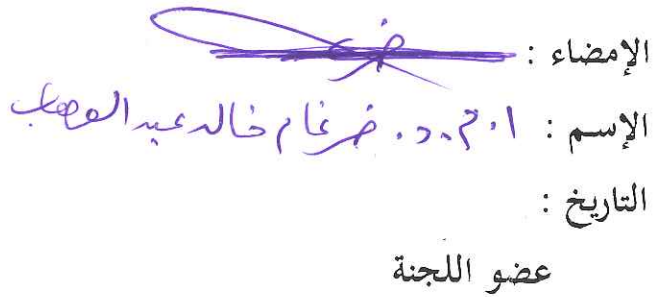 الإمضاء :
الإسم : ا.م.د. ضرغام خالد عبد الوهاب
التاريخ :
عضو اللجنة